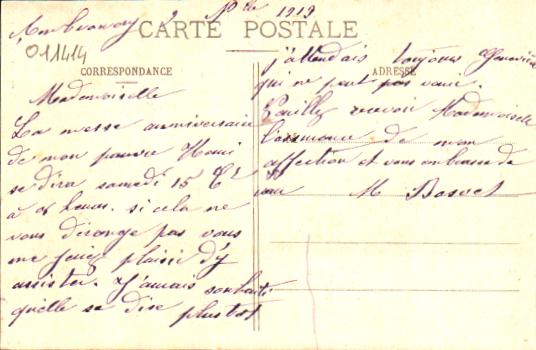 9 Nbre 1919
CARTE POSTALE
011414
CORRESPONDANCE
ADRESSE
Mademoiselle
La messe anniversaire
de mon pauvre Henri
se dira samedi 15 Ct
à heures. si cela ne
vous dérange pas vous
me feriez plaisir d'y
assister. J'aurais souhaité
qu'elle se dise plus tôt
j'attendais toujours Geneviève
qui ne peut pas venir.
Veuillez recevoir Mademoiselle
l'assurance de mon
affection et vous embrasse de
M